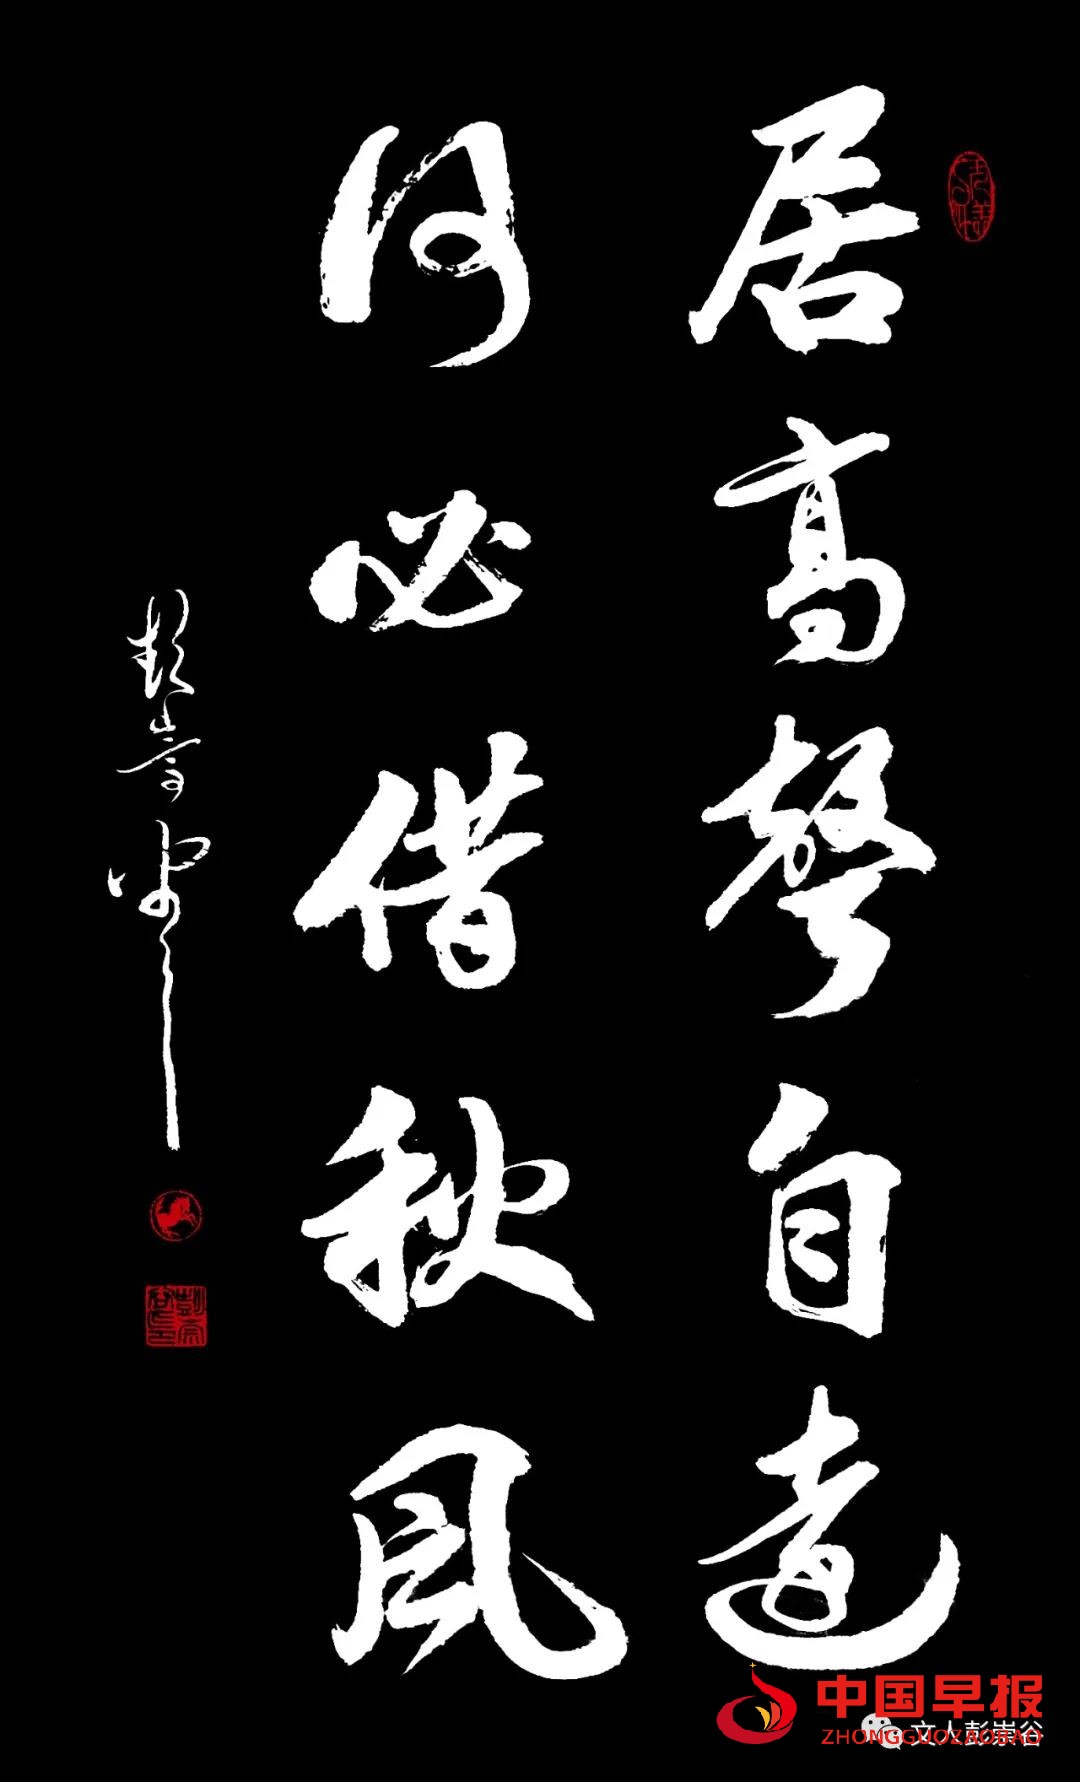 居高聲自遠
何必借秋風
彭崇谷
中国早报
ZHONGGUOZAOBAO
文人彭崇谷